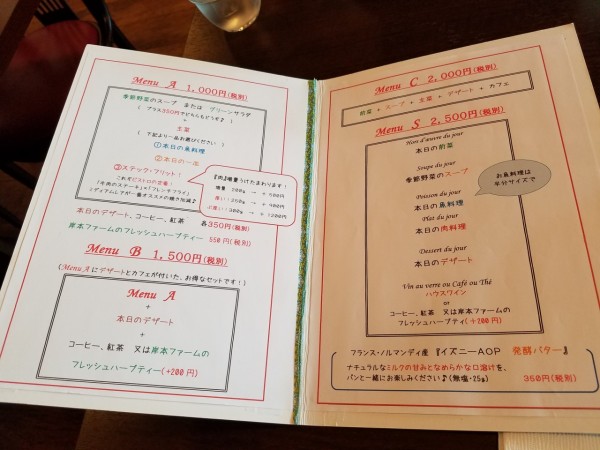 Menu A 1,000円(税別)
季節野菜のスープ または グリーンサラダ
( プラス350円でどちらもどうぞ♪ )
+
主菜
( 下記より一品お選びください )
①本日の魚料理
②本日の一皿
③ステック・フリット!
これぞビストロの定番!
「牛肉のステーキ」+「フレンチフライ」
ミディアムレアが一番オススメの焼き加減♪
『肉』増量うけたまわります!
増量 200g → +
300g → +1200円
本日のデザート、コーヒー、紅茶 各350円(税別)
岸本ファームのフレッシュハーブティー 550円(税別)
Menu B 1,500円(税別)
(Menu Aにデザートとカフェが付いた、お得なセットです!)
Menu A
+
本日のデザート
+
コーヒー、紅茶 又は岸本ファームの
フレッシュハーブティー(+200円)
Menu C 2,000円(税別)
前菜 + スープ + 主菜 + デザート + カフェ
Menu S 2,500円(税別)
Hors d'œuvre du jour
本日の前菜
Soupe du jour
季節野菜のスープ
お魚料理は
半分サイズで
Poisson du jour
本日の魚料理
Plat du jour
本日の肉料理
Dessert du jour
本日のデザート
Vin au verre ou Café ou Thé
ハウスワイン
or
コーヒー、紅茶 又は岸本ファームの
フレッシュハーブティ(+200円)
フランス・ノルマンディ産 『イズニーAOP 発酵バター』
ナチュラルなミルクの甘みとなめらかな口溶けを、
パンと一緒にお楽しみください♪(無塩・25g) 350円(税別)